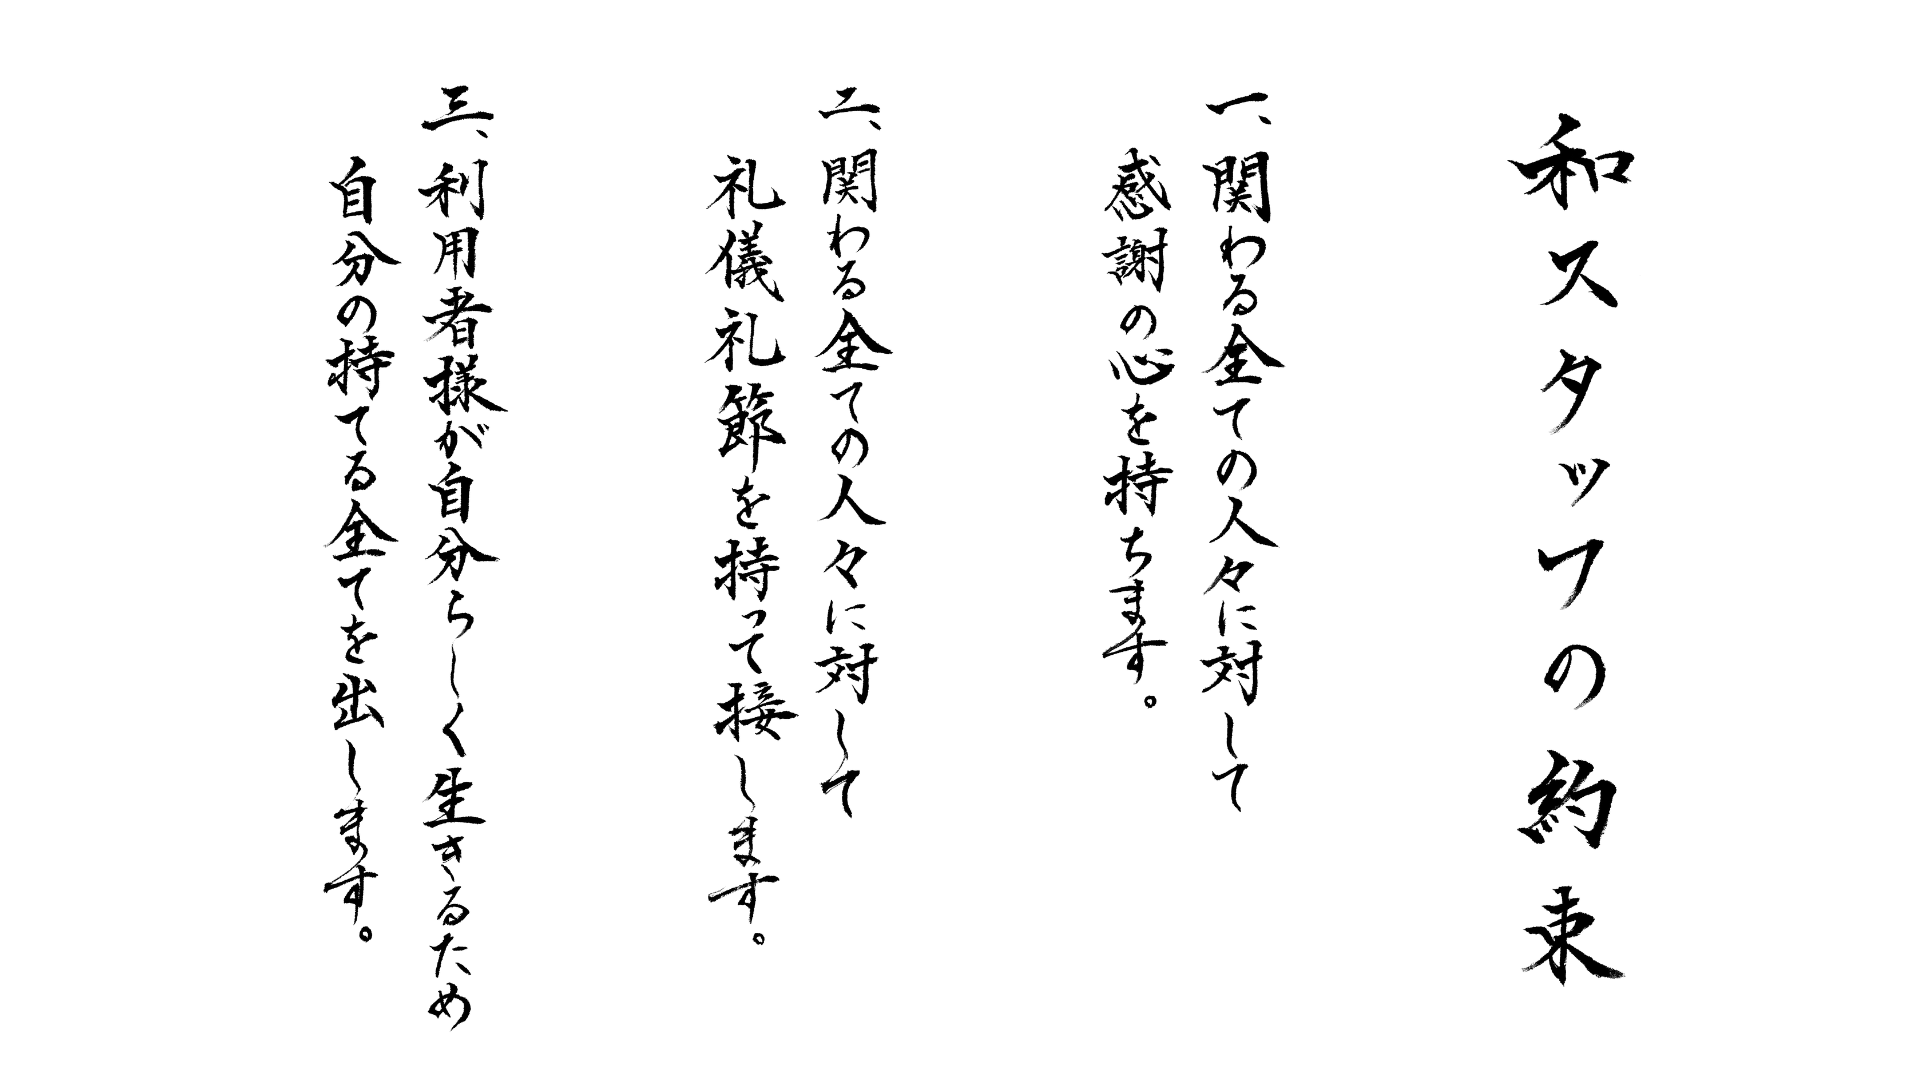 和スタッフの約束
一、関わる全ての人々に対して
感謝の心を持ちます。
二、関わる全ての人々に対して
礼儀礼節を持って接します。
三、利用者様が自分らしく生きるため
自分の持てる全てを出します。